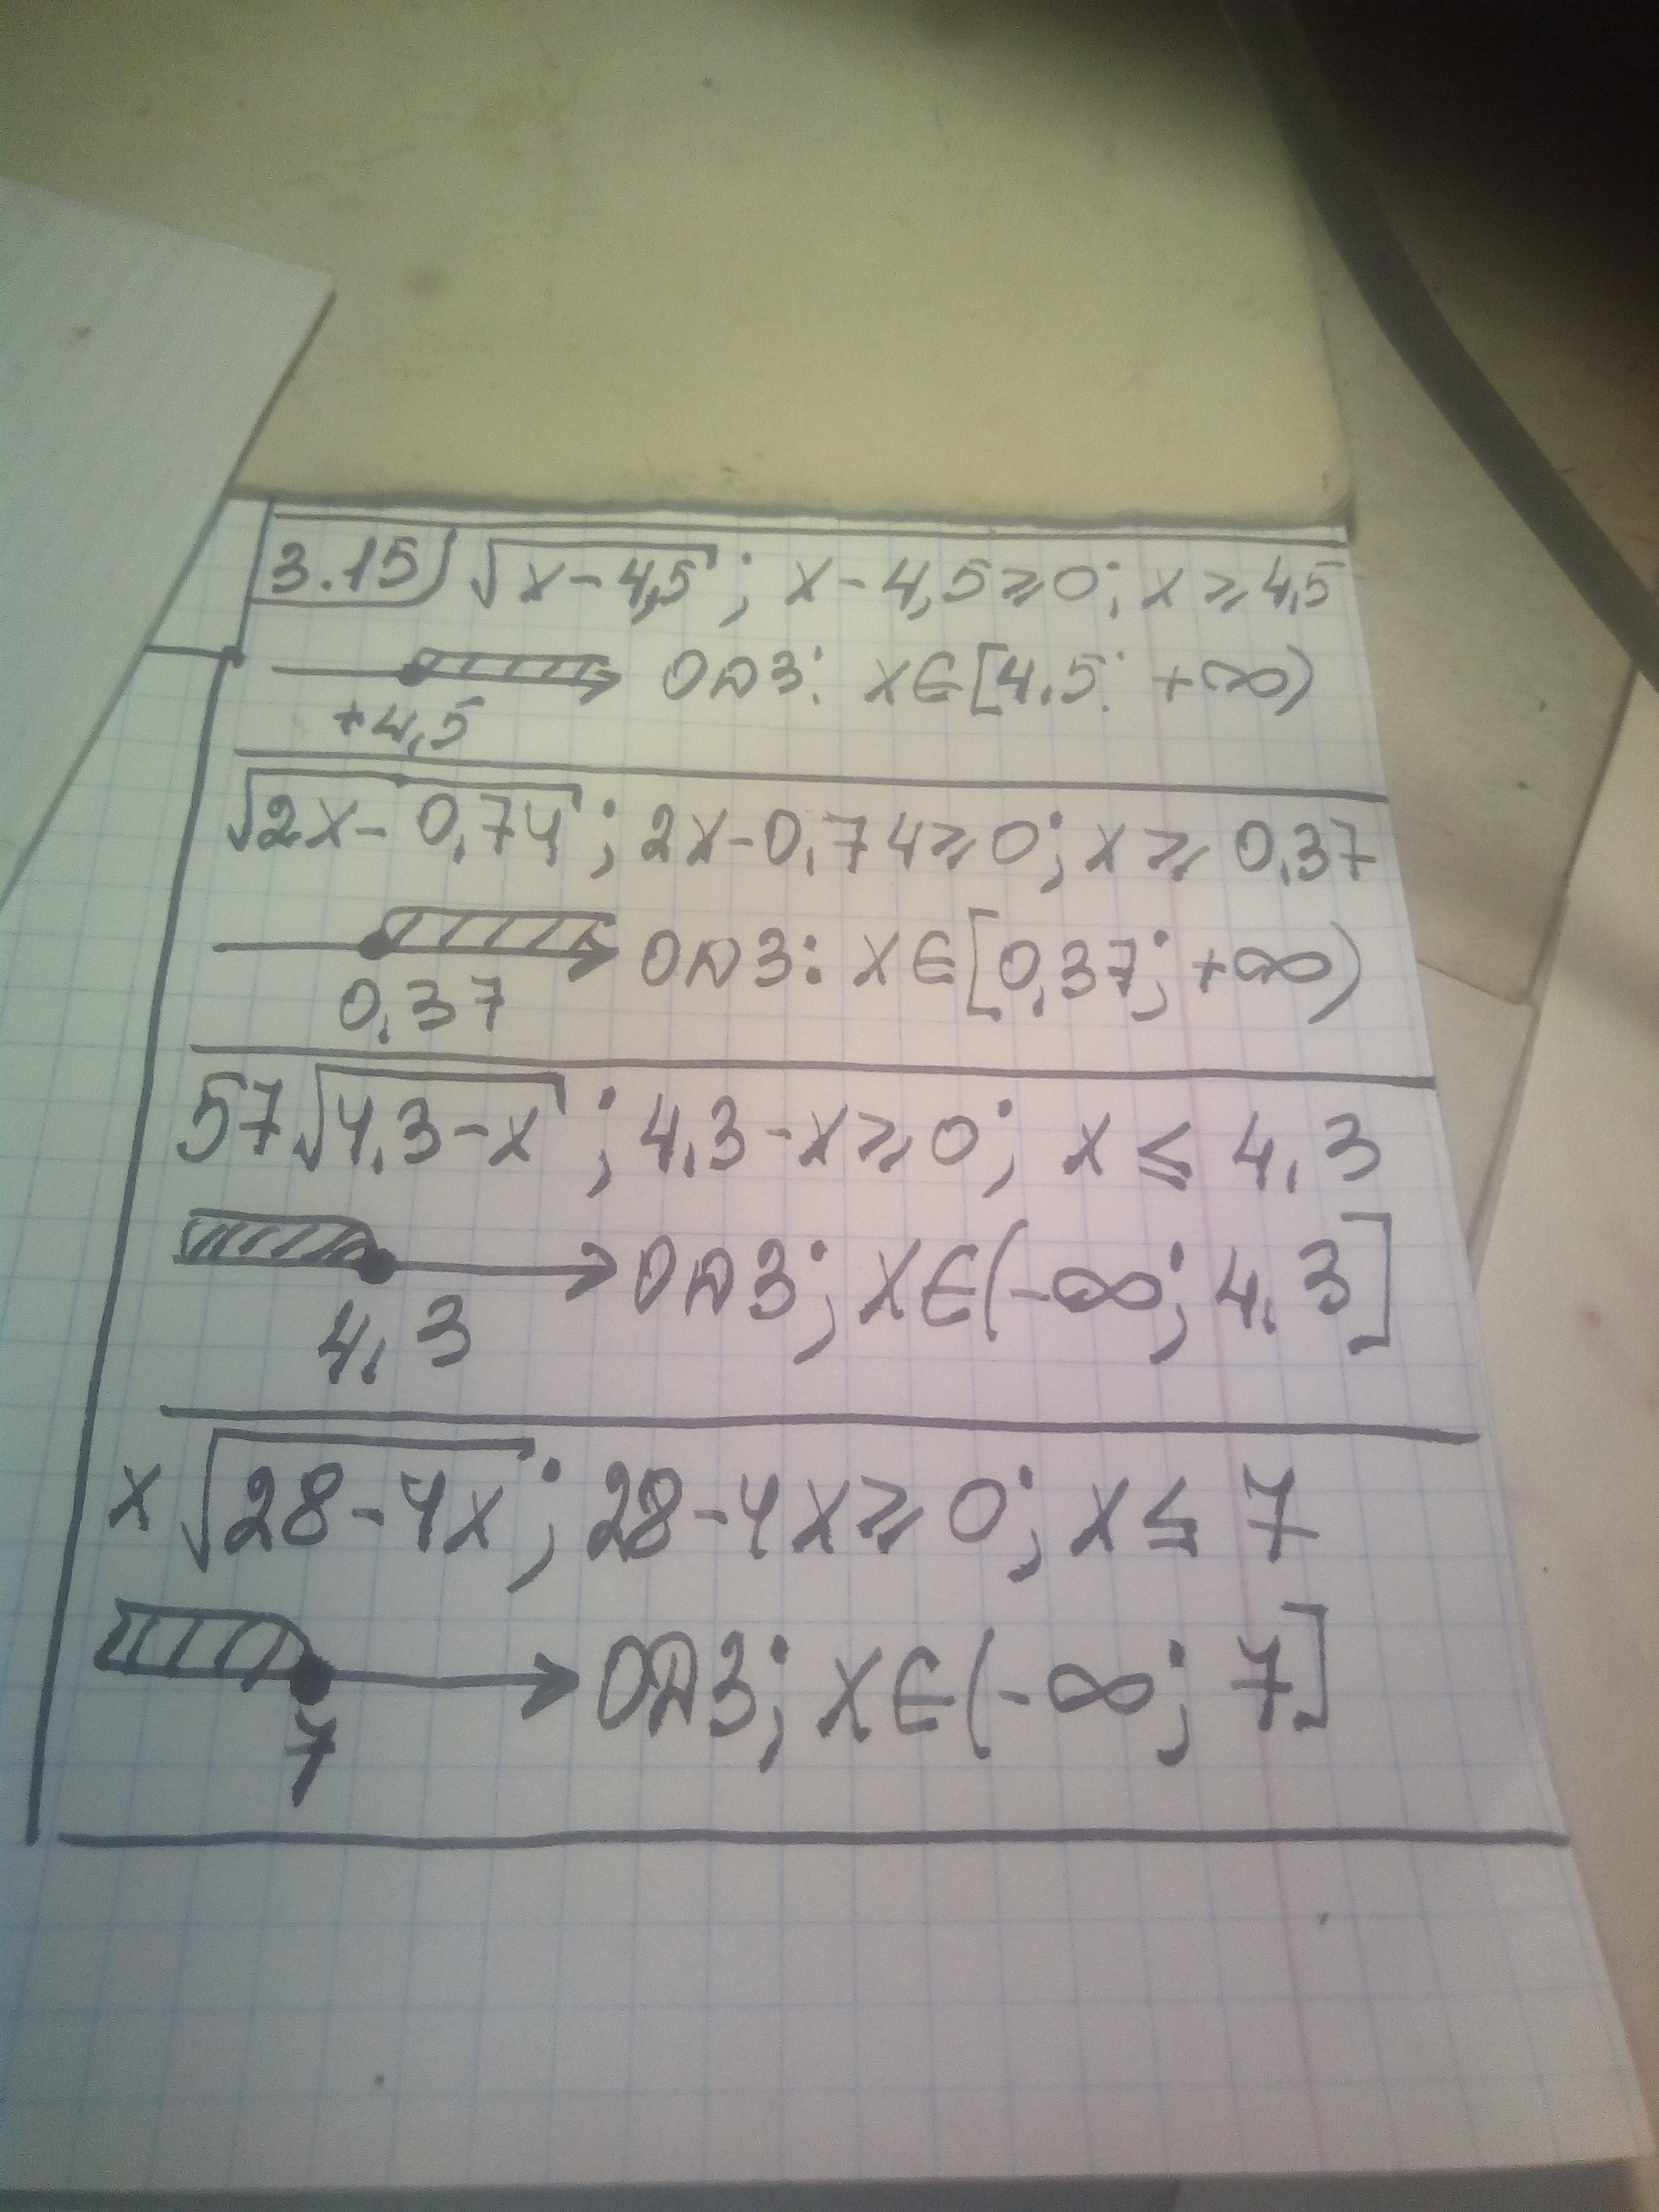 3.15) √(x-4,5); x-4,5⩾0; x⩾4,5
+4,5 ОДЗ: x∈[4,5; +∞)
√(2x-0,74); 2x-0,74⩾0; x⩾0,37
0,37 ОДЗ: x∈[0,37; +∞)
57√(4,3-x); 4,3-x⩾0; x⩽4,3
4,3 ОДЗ; x∈(-∞; 4,3]
x√(28-4x); 28-4x⩾0; x⩽7
7 ОДЗ; x∈(-∞; 7]